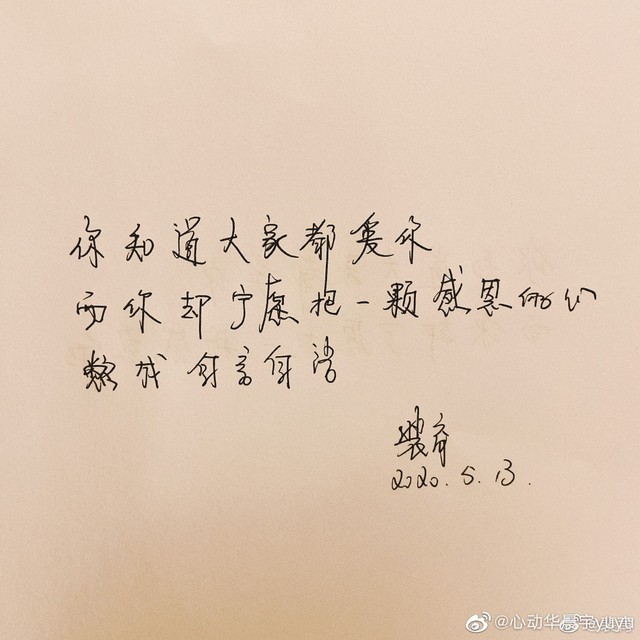 你知道大家都爱你
而你却宁愿把一颗感恩的心
熬成自言自语
裴育
2020.5.13.
@心动华晨宇yuyu